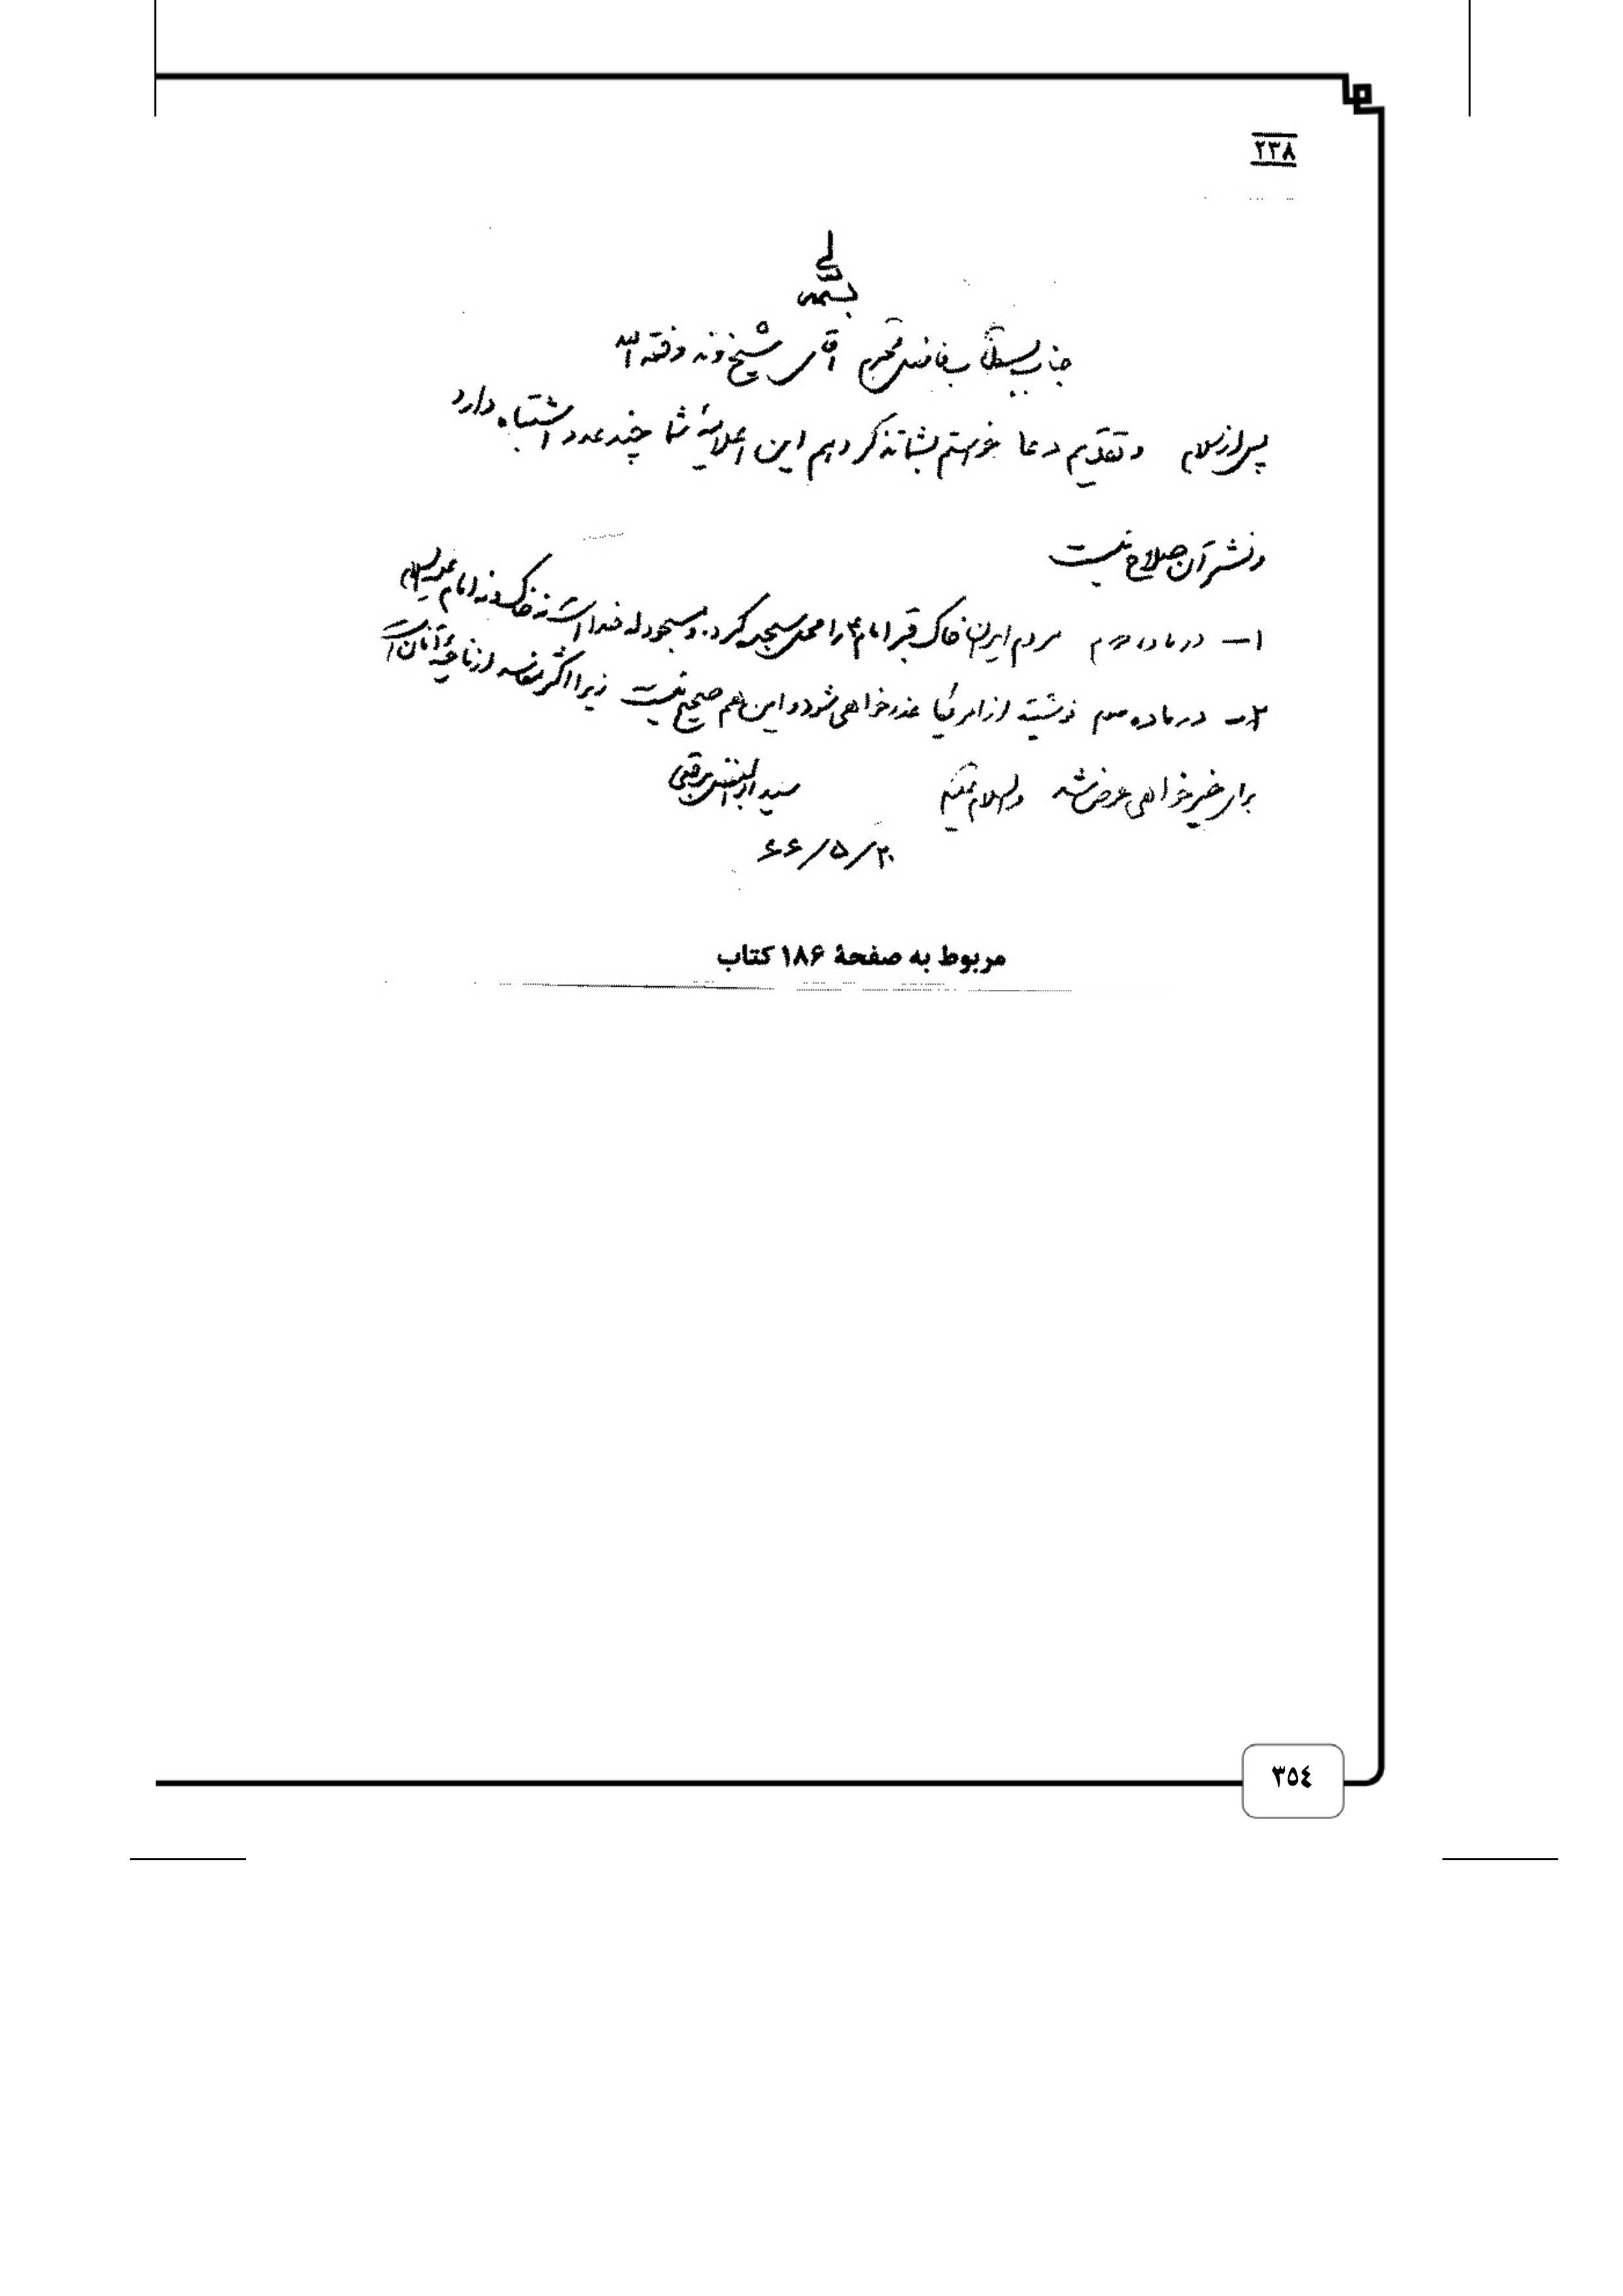 ۲۳۸
بسمه تعالی
جناب مستطاب فاضل محترم آقای شیخ وفقه الله
پس از سلام و تقدیم دعا خواستم بشما تذکر دهم این اعلامیهٔ شما چند عدد اشتباه دارد
و نشر آن صلاح نیست
۱ــ در ماده دوم مردم ایران خاک قبر امام را محل سجده کرده و مسجود له خدا است نه خاک و نه امام علیه السلام
۲ــ در ماده سوم نوشته از امریکا عذرخواهی شود و این هم صحیح نیست زیرا اکثر مفاسد از ناحیهٔ آنان است
برای خیرخواهی عرض شد والسلام علیکم سید ابوالفضل برقعی
۶۶/۵/۲۰
مربوط به صفحهٔ ۱۸۶ کتاب
٣٥٤